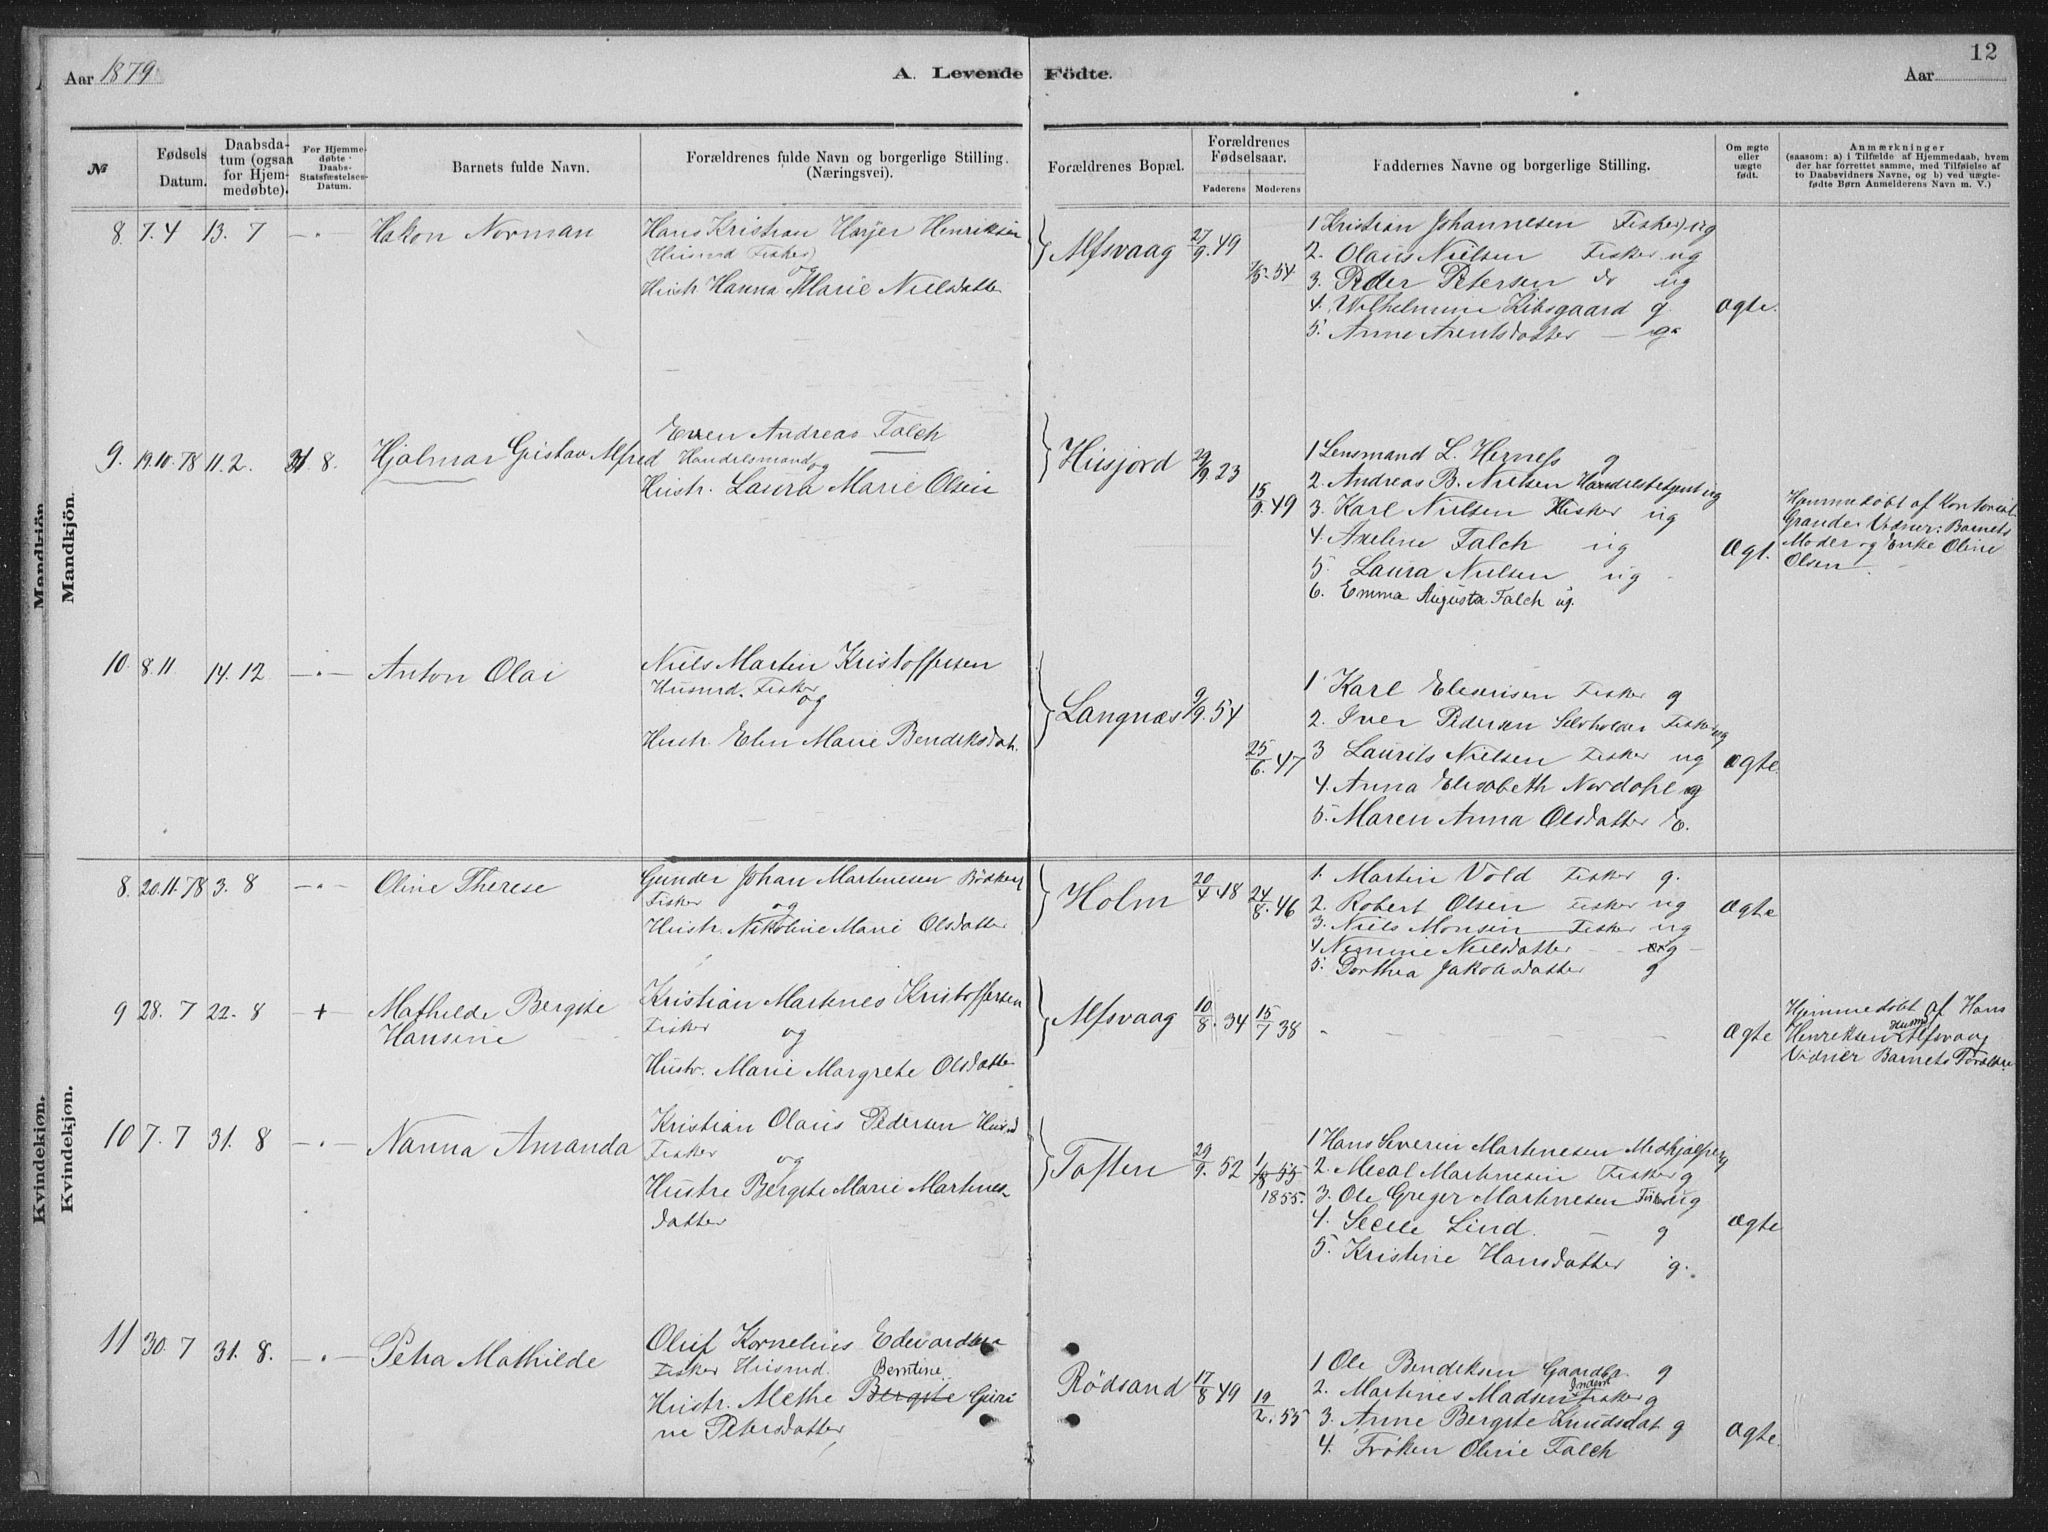 Aar 1879
A. Levende Födte.
Aar
12
№
Fødsels Datum.
Daabsdatum (ogsaa for Hjemmedøbte).
For Hjemmedøbte Daabs-Statsfæstelses-Datum.
Barnets fulde Navn.
Forældrenes fulde Navn og borgerlige Stilling. (Næringsvei).
Forældrenes Bopæl.
Forældrenes Fødselsaar.
Faderens
Moderens
Faddernes Navne og borgerlige Stilling.
Om ægte eller uægte født.
Anmærkninger
(saasom: a) i Tilfælde af Hjemmedaab, hvem der har forrettet samme, med Tilføielse af to Daabsvidners Navne, og b) ved uægtefødte Børn Anmelderens Navn m. V.)
Mandkjön.
Mandkjön.
8. 7.4 13.7 —"— Hakon Norman
Hans Kristian Henriksen
(Husmd Fisker)
og
Hustr Hanna Marie Nielsdatter
Alfsvaag
27/9.49
54
1 Kristian Johannesen Fisker ug
2. Olaus Nielsen Fisker ug
3. Peder Petersen do ug
4. Wilhelmine g.
5. Anne Arentsdatter — g.
Ægte.
9. 19.10.78 11.2. 31.8. Hjalmar Gustav Alfred
Even Andreas Falch
Handelsmand
og
Hustr. Laura Marie Olsen
Husjord
29/9.23
15/9.49
1 Lensmand L. Herness g
2. Andreas B. Nielsen Handelsbetjent ug
3. Karl Nielsen Fisker ug
4. Axeline Falch ug
5. Laura Nielsen ug
6. Emma Augusta Falch ug.
Ægt.
Hjemmedøbt af Kontorist
Grande. Vidner: Barnets
Moder og Enke Oline
Olsen
10. 8.11 14.12 —"— Anton Olai
Niels Martin Kristoffersen
Husmd. Fisker
og
Hustr. Elen Marie Bendiksdatt.
Langnæs
9/9.54
25/6.47
1 Karl Eleseusen Fisker g
2. Iver Pedersen Selvholder Fisker ug
3 Laurits Nielsen Fisker ug
4. Anna Elisabeth Nordahl g
5. Maren Anna Olsdatter E.
Ægte.
Kvindekjøn.
Kvindekjøn.
8. 20.11.78 3.8 —"— Oline Therese
Gunder Johan Martinesen Bødker
Fisker
og
Hustr. Nikoline Marie Olsdatter
Holm
20/4 48
24/8.46
1. Martin Vold Fisker g.
2. Robert Olsen Fisker ug
3. Niels Monsen Fisker ug
4 Nielsdatter — g
5. Dorthea Jakobsdatter g
Ægte
9 28.7 22.8 —+— Mathilde Bergite
Hansine
Kristian Martines Kristoffersen
Fisker
og
Hustr. Marie Margrete Olsdatter
Alfsvaag
10/8.34
15/7 38
Ægte
Hjemmedøbt af Hans
Henriksen Husmd Alfsvaag
Vidner Barnets Forældre
10 7.7 31.8 —"— Nanna Amanda
Kristian Olaus Pedersen Husmd
Fisker
og
Hustru Bergite Marie Martines-
datter
Toften
29/9.52
1/8 55
1855.
1 Hans Severin Martinesen Medhjælper g
2. Mecal Martinesen Fisker g
3. Ole Greger Martinesen Fisker ug
4. Lind. — g
5. Kristine Hansdatter g.
Ægte
11 30.7 31.8. —"— Petra Mathilde
Oluf Kornelius Edvardsen
Fisker Husmd. Berntine
Hustr. Methe Bergite Guri-
ne Petersdatter
Rödsand
17/8 49
19/2.55
1 Ole Bendiksen Gaardbr. g
2. Martines Madsen Inderst Fisker g
3. Anne Bergite Knudsdat g
4. Frøken Oline Falch
Ægte.